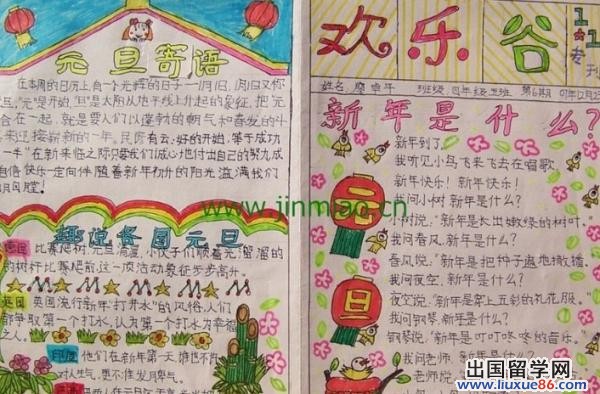 元旦寄语
在本周的日历上有一个光辉的日子一1月1日,1月1日又称
元旦,"元"是开始,但"是太阳从地平线上升起的象征,把"元
合在一起,就是要人们以蓬勃的朝气和奋发的斗
来迎接新的一年。民谚有云:好的开始,等于成功
一半"在新来临之际只要我们诚心地付出自己的努力,成
自信快乐一定向伴随着新年初升的阳光溢满我们
趣说各国元旦
德国 比赛爬树,元旦清晨,小伙子们顺着光溜溜的
的树杆比赛爬前,这一项活动象征步步高升。
英国 英国流行新年"打井水"的风俗,人们
都争取第一个打水,认为第一个打水为幸福
之人。
印度 他们在新年第一天谁也不许
对人生气,更不准发脾气。
欢乐谷
专刊
姓名 班级 四年级 班 第6期
新年是什么?
新年到了,
我听见小鸟飞来飞去在唱歌,
新年快乐!新年快乐!
我问小树,新年是什么?
小树说:"新年是长出嫩绿的树叶。
我问春风,新年是什么?
春风说:"新年是把种子遍地撒播。
我问夜空,新年是什么?
夜空说:"新年是穿上五彩的礼花服。
我问钢琴,新年是什么?
钢琴说:"新年是叮叮咚咚的音乐。
我问老师,新年是什么?
老师说,
元旦
www.jinmiao.cn
出国留学网
www.liuxue86.com